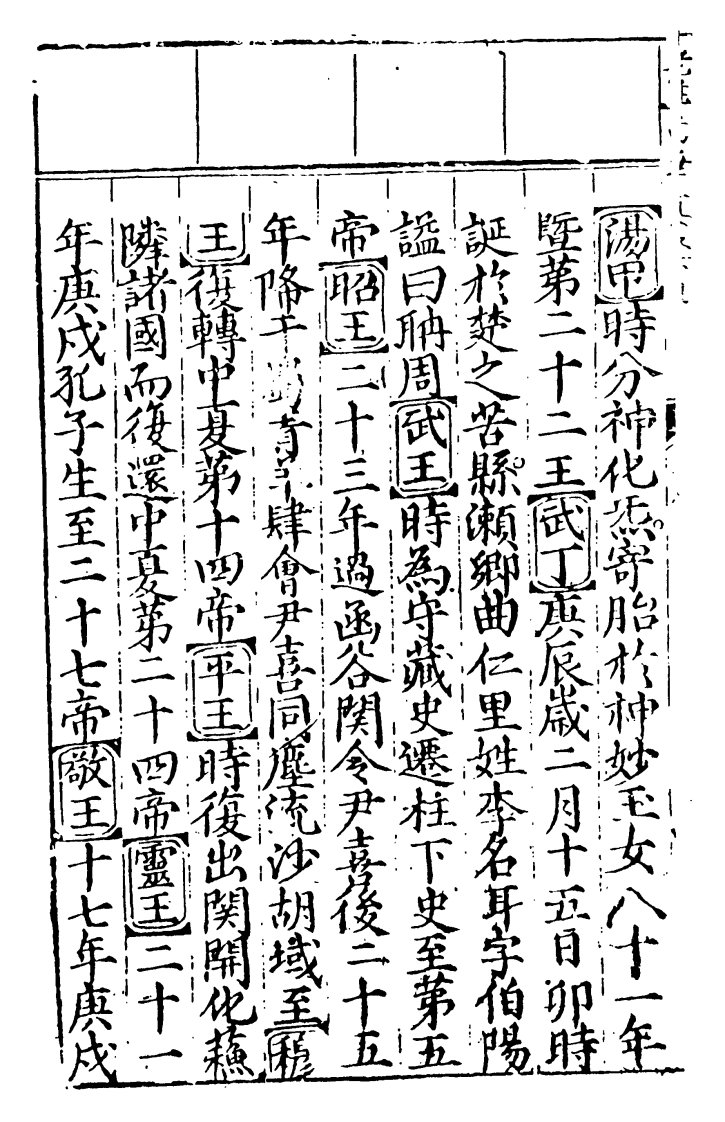 湯甲時分神化炁寄胎於神妙玉女八十一年
暨第二十二王武丁庚辰歲二月十五日卯時
誕於楚之苦縣瀨鄉曲仁里姓李名耳字伯陽
謚曰聃周武王時為守藏史遷柱下史至第五
帝昭王二十三年過函谷関令尹喜後二十五
年降于蜀青羊肆會尹喜同塵流沙胡域至穆
王復轉中夏第十四帝平王時復出関開化蘓
隣諸國而復還中夏第二十四帝靈王二十一
年庚戍孔子生至二十七帝敬王十七年庚戍